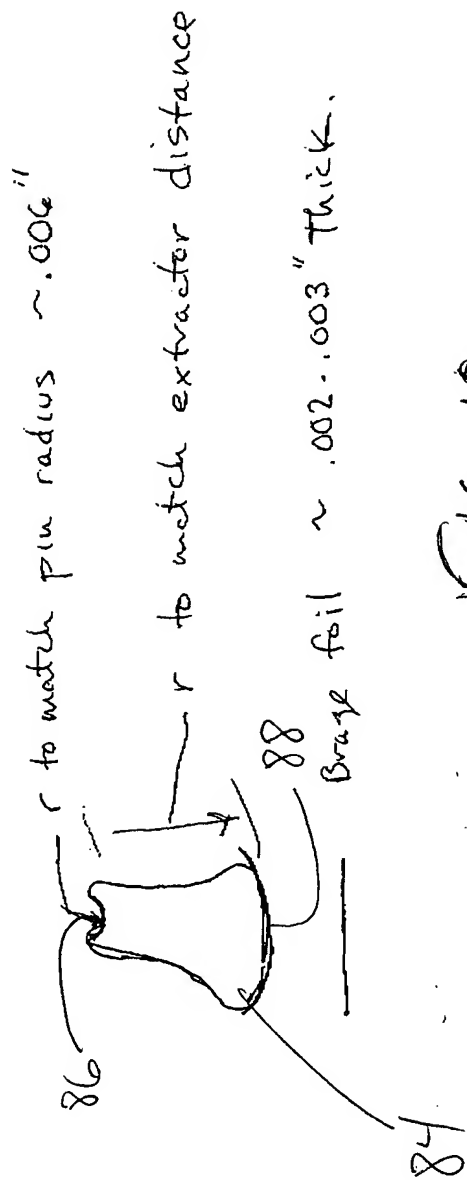 86
r to match pin radius ~.006"
r to match extractor distance
88
Braze foil ~ .002-.003" thick.
84